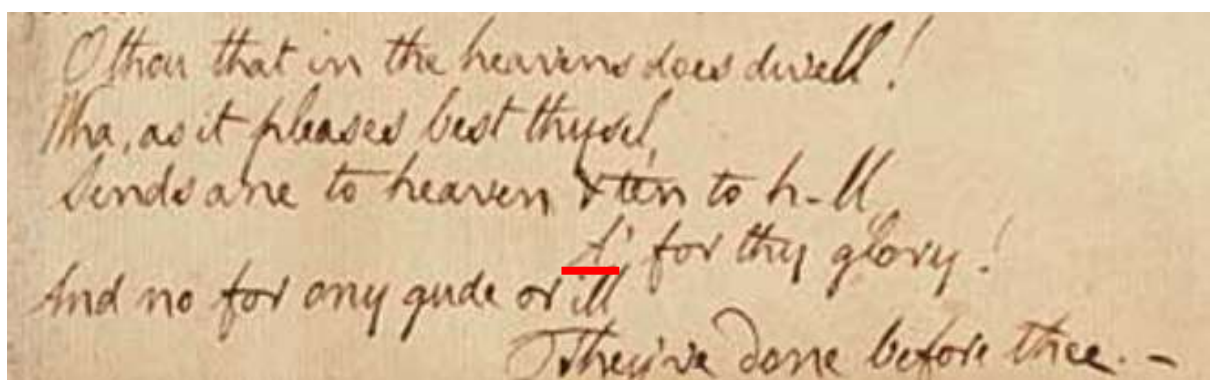 O thou that in the heavens does dwell!
Wha, as it pleases best thysel,
Sends ane to heaven & ten to h-ll,
A' for thy glory!
And no for ony gude or ill
They've done before thee. -